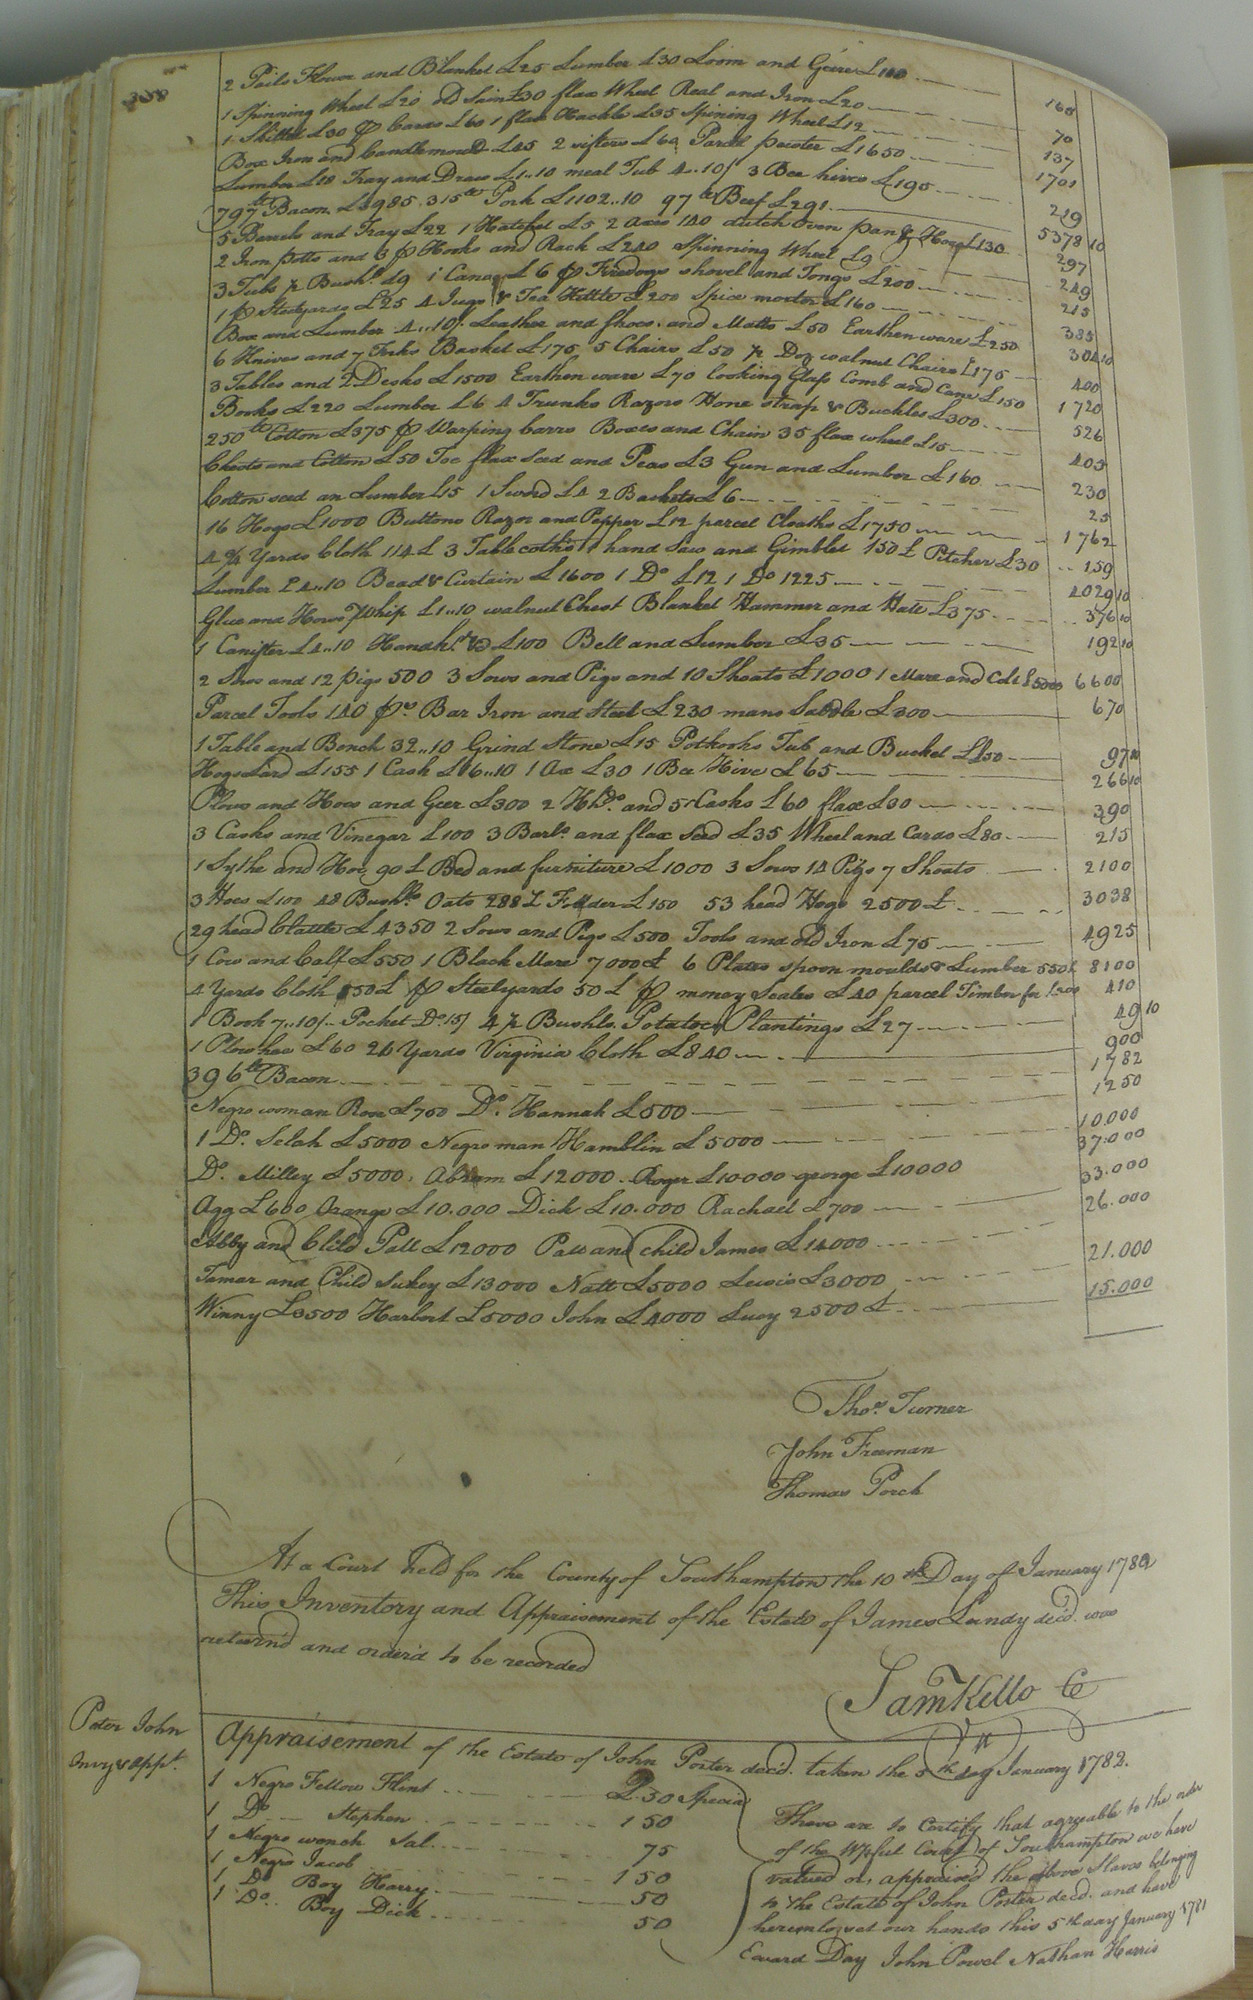 328
2 Pails Flower and Blanket £25 Lumber £30 Loom and Geer £100 160
1 Spinning Wheel £20 old Saint £30 flax Wheel Real and Iron £20 70
1 Skillet £30 pr Cards £60 1 flax Hackle £35 Spining Wheel £12 137
Box Iron and Candlemould £45 2 sifters £6 Parcel pewter £1650 1701
Lumber £18 Tray and Draw £1..10 meal Tub 4..10/ 3 Bee hives £195 219
797 lb Bacon £3985 315 lb Pork £1102..10 97 lb Beef £291 5378 10
5 Barrels and Tray £22 1 Hatchet £5 2 axes 140 dutch Oven pan & £130 297
2 Iron potts and 3 pr Hooks and Rack £240 Spinning Wheel £9 249
3 Tubs ½ Bushl. £9 1 £6 pr Firedogs shovel and Tongs £200 215
1 pr Steelyards £25 4 Jugs & Tea Kettle £200 Spice mortar £160 385
Box and Lumber 4..10/. Leather and shoes and Matts £50 Earthen ware £250 304 10
6 Knives and 7 Forks Basket £175 5 Chairs £50 ½ Doz walnut Chairs £175 400
3 Tables and 2 Desks £1500 Earthen ware £70 looking Glass Comb and Cane £150 1720
Books £220 Lumber £6 4 Trunks Razors Hone strap & Buckles £300 526
250 lb Cotton £375 pr Warping barrs Boxes and Chain 35 flax wheel £15 405
Chests and Cotton £50 Toe flax seed and Peas £3 Gun and Lumber £160 230
Cotton seed an Lumber £15 1 Sword £4 2 Baskets £6 25
16 Hogs £1000 Buttons Razor and Pepper £12 parcel Cloaths £1750 1762
4 ¾ Yards Cloth 114£ 3 Tablecoths 1 hand Saw and Gimblet 150£ Pitcher £30 159
Lumber £4..10 Bead & Curtain £1600 1 Do £12 1 Do 1225 4029 10
Glue and Hows Whip £1..10 walnut Chest Blanket Hammer and Hate £375 376 10
1 Canister £4..10 Handk. £100 Bell and Lumber £35 192 10
2 Sows and 12 pigs 500 3 Sows and Pigs and 10 Shoats £1000 1 Mare and Colt £5000 6600
Parcel Tools 140 pr. Bar Iron and Steel £230 mans Saddle £300 670
1 Table and Bench 32..10 Grind Stone £15 Pothooks Tub and Bucket £50 97 10
Hogs Lard £155 1 Cask £16..10 1 Ax £30 1 Bee Hive £65 266 10
Plows and Hoes and Geer £300 2 Hhds. and 5 Casks £60 flax £30 390
3 Casks and Vinegar £100 3 Barls. and flax Seed £35 Wheel and Cards £80 215
1 Sythe and Hoe 90£ Bed and furniture £1000 3 Sows 14 Pigs 7 Shoats 2100
3 Hoes £100 48 Bushls. Oats 288£ Fodder £150 53 head Hogs 2500£ 3038
29 head Cattle £4350 2 Sows and Pigs £500 Tools and old Iron £75 4925
1 Cow and Calf £550 1 Black Mare 7000£ 6 Plates spoon moulds & Lumber 550£ 8100
4 Yards Cloth 50£ pr Steelyards 50£ pr money Scales £40 parcel Timber for 410
1 Book 7..10/- Pocket Do. 15/ 4½ Bushls. Potatoes Plantings £27 49 10
1 Plow hoe £60 24 Yards Virginia Cloth £840 900
396 lb Bacon 1782
Negro woman Rose £750 Do. Hannah £500 1250
1 Do. Selah £5000 Negro man Hamblin £5000 10.000
Do. Milley £5000, Abram £12000 Roger £10000 george £10000 37.000
Agg £600 Orange £10.000 Dick £10.000 Rachael £700 33.000
Abby and Child Patt £12000 Patt and child James £14000 26.000
Tamar and Child Sukey £13000 Natt £5000 Lewis £3000 21.000
Winny £3500 Harbert £5000 John £4000 Lucy 2500£ 15.000
Thos. Turner
John Freeman
Thomas Porch
At a Court held for the County of Southampton the 10th Day of January 1782
This Inventory and Appraisement of the Estate of James Lundy decd. was
returnd and orderd to be recorded
Sam Kello C
Porter John
Invy & appt.
Appraisement of the Estate of John Porter decd. taken the 5th day January 1782.
1 Negro Fellow Flint £.50 Specia
1 Do Stephen 150
1 Negro wench Sal 75
1 Negro Jacob 150
1 Do Boy Harry 50
1 Do. Boy Dick 50
These are to Certify that agreable to the order
of the Wpful Court of Southampton we have
valued or appraised the above Slaves belonging
to the Estate of John Porter decd. and have
hereunto set our hands this 5th day January 1781
Edward Day John Powel Nathan Harris